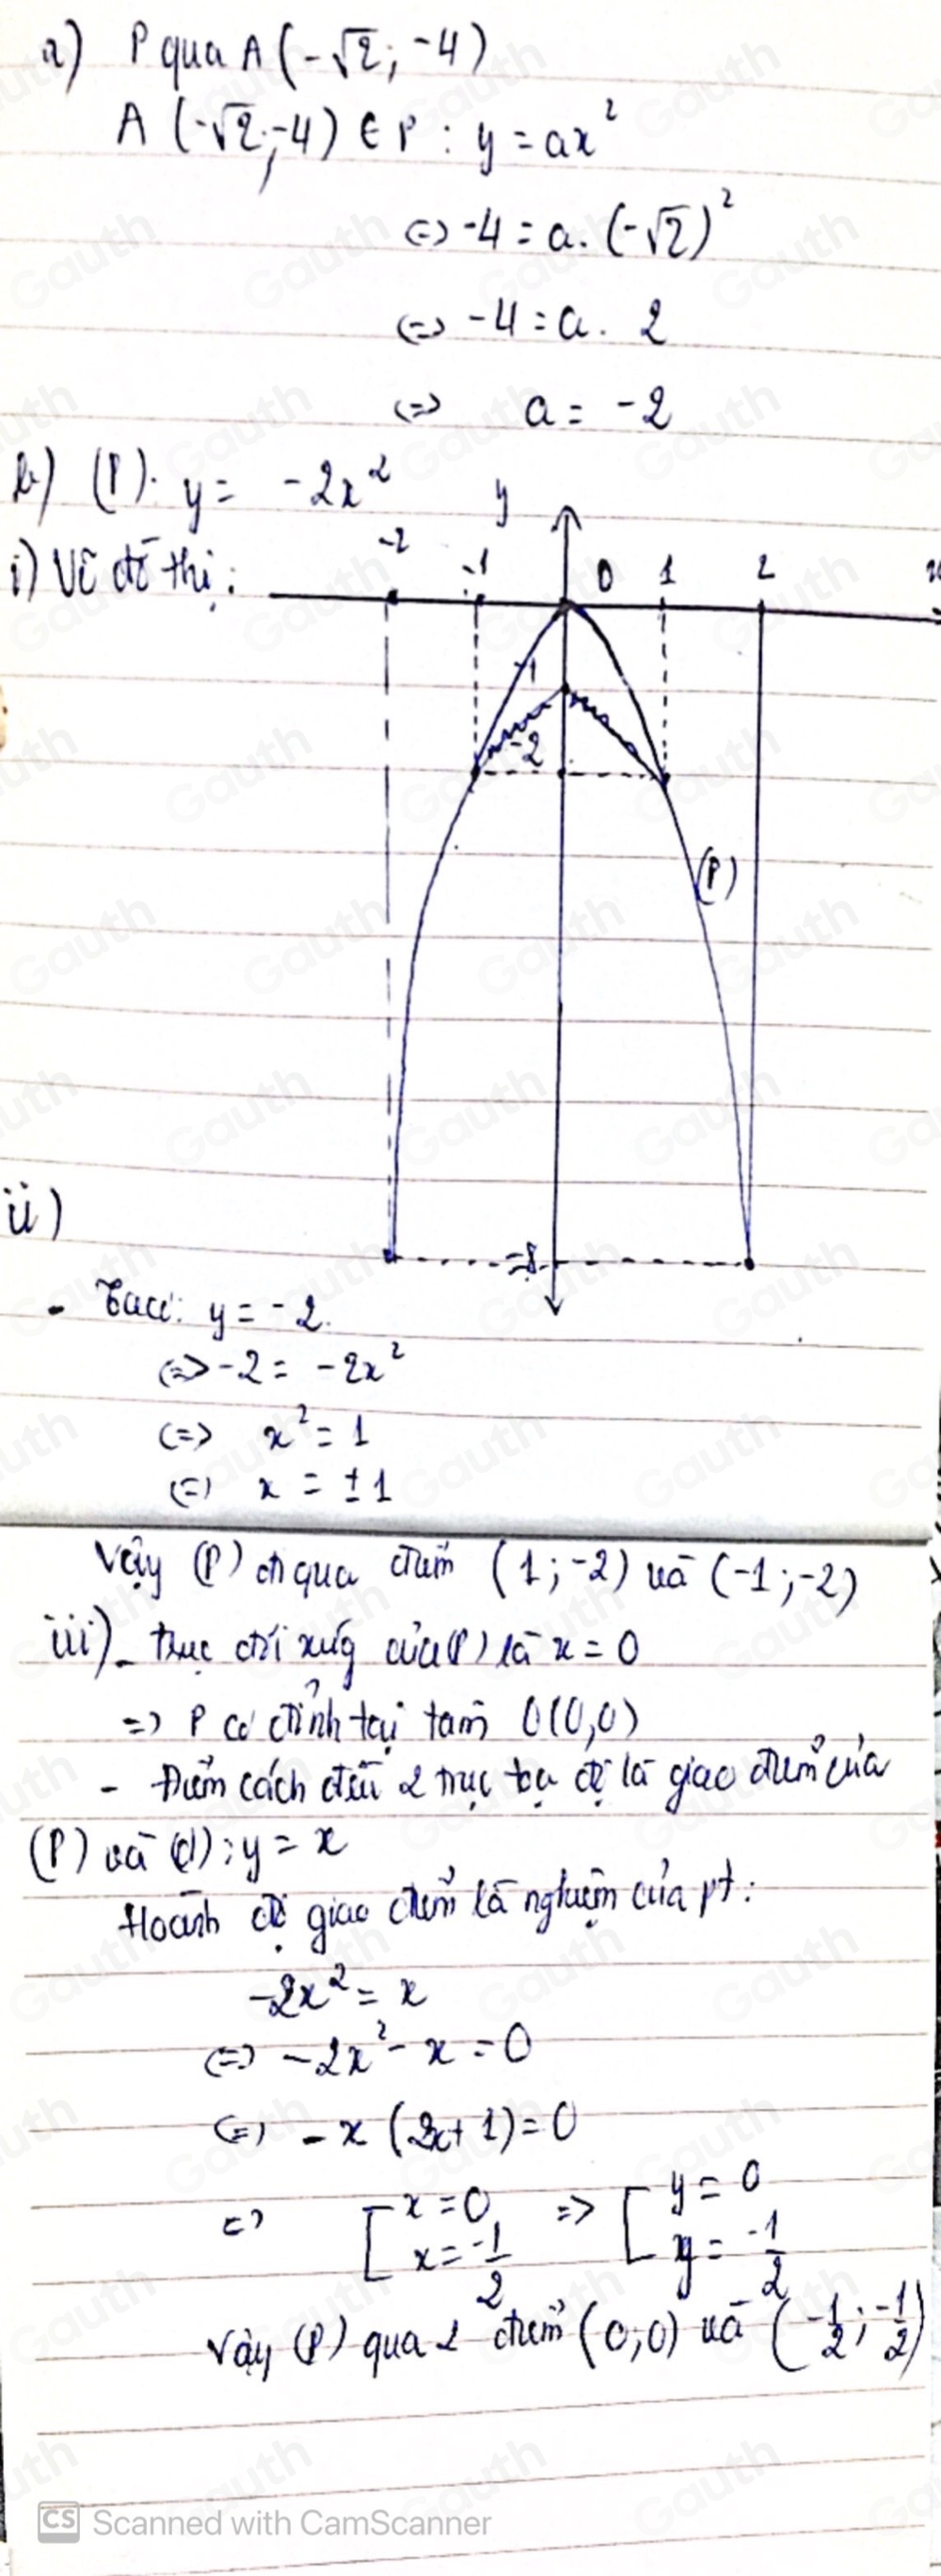 a) P qua A (-√2; -4)
A (-√2; -4) ∈ P : y = ax²
<=> -4 = a. (-√2)²
<=> -4 = a. 2
<=> a = -2
b) (P). y = -2x²
i) Vẽ đồ thị :
y
-2 -1 0 1 2 x
-1
-2
(P)
-8
ii)
- Ta có: y = -2.
<=> -2 = -2x²
<=> x² = 1
<=> x = ±1
Vậy (P) đi qua điểm (1; -2) và (-1; -2)
iii) - Trục đối xứg của (P) là x = 0
=> P có đỉnh tại tâm O(0,0)
- Điểm cách đều 2 trục tọa độ là giao điểm của
(P) và (d): y = x
Hoành độ giao điểm là nghiệm của pt:
-2x² = x
<=> -2x² - x = 0
<=> -x (2x + 1) = 0
<=> [ x = 0, x = -1/2 => [ y = 0 y = -1/2
Vậy (P) qua 2 điểm (0; 0) và (-1/2; -1/2)
CS Scanned with CamScanner